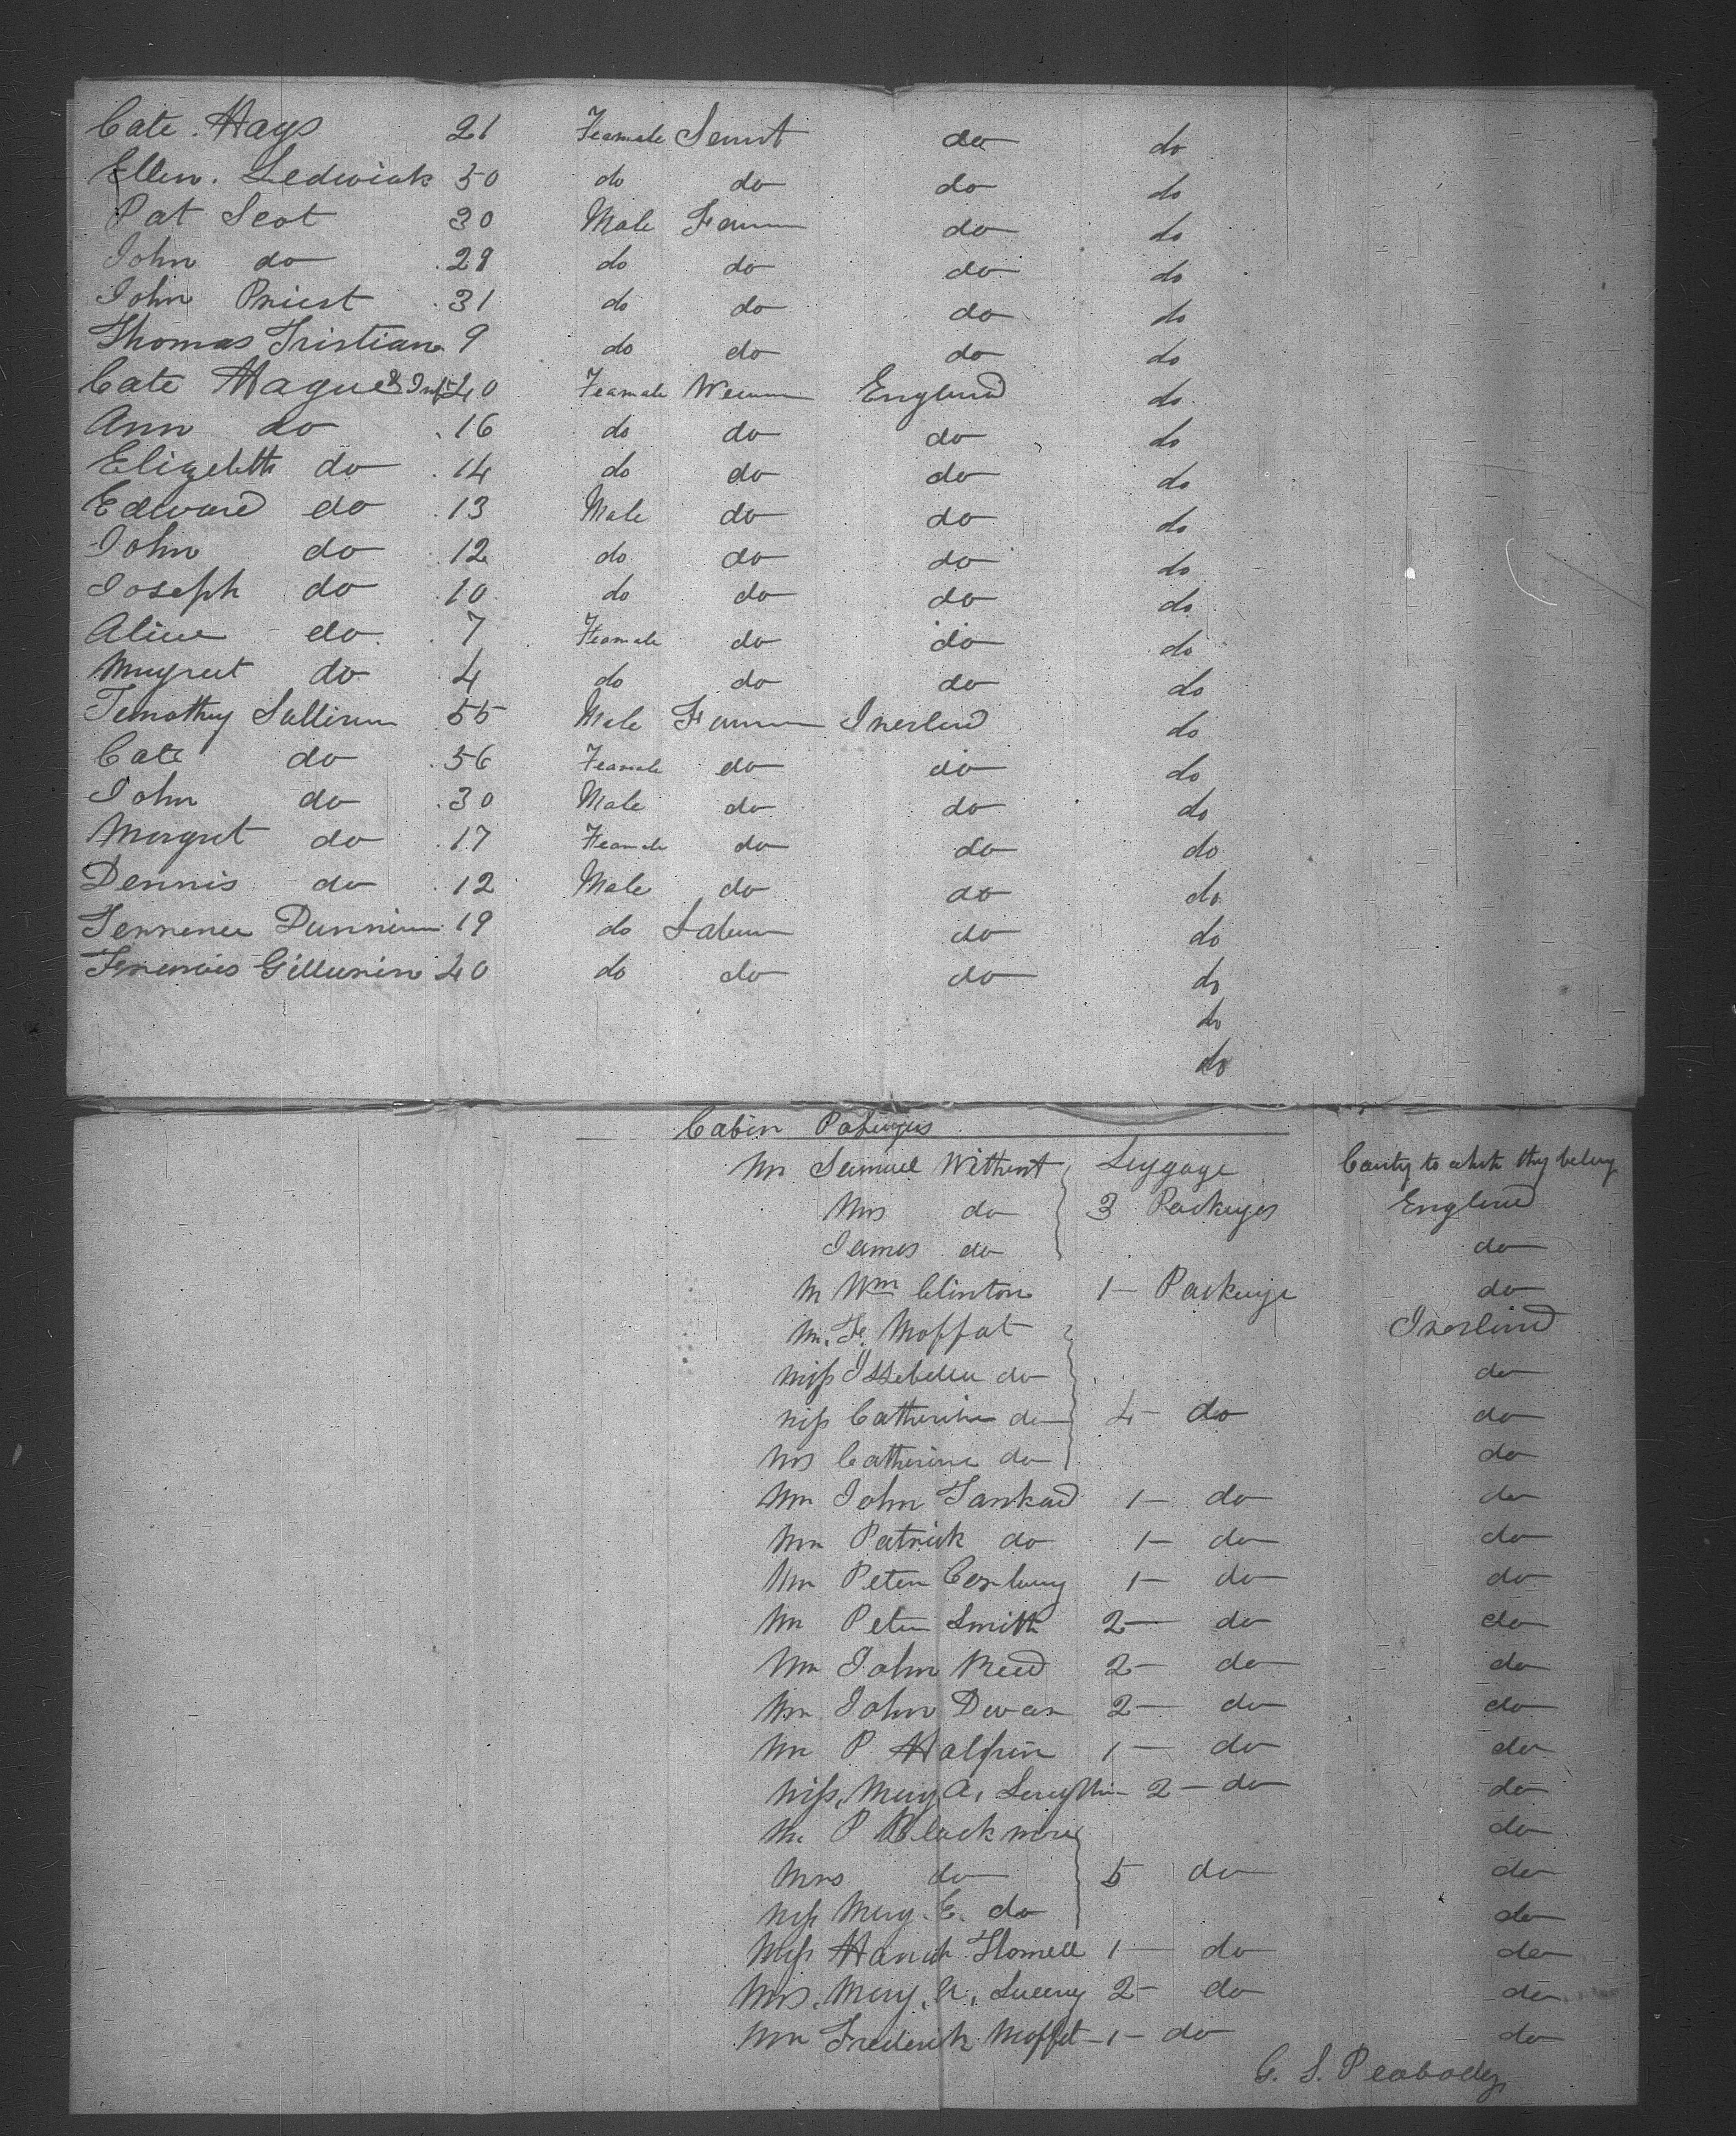 Cate Hays 21 Feamale do do
Ellen. Ledwick 50 do do do do
Pat Scot 30 Male do do
John do 28 do do do do
John Priest 31 do do do do
Thomas Tristian 9 do do do do
Cate Hague & Inft 40 Feamale England do
Ann do 16 do do do do
Elizebth do 14 do do do do
Edward do 13 Male do do do
John do 12 do do do do
Joseph do 10 do do do do
Alice do 7 Feamale do do do
Mugreet do 4 do do do do
Timothy Sullivan 55 Male Ireland do
Cate do 56 Feamale do do do
John do 30 Male do do do
Morgret do 17 Feamale do do do
Dennis do 12 Male do do do
Terrence 19 do do do
Francis 40 do do do do
do
do
Cabin
Mr Samuel Luggage
Mrs do 3 Packages England
James do do
M Wm Clinton 1 - Package do
M. Moffat Ireland
Miss Issebella do do
Miss Catherine do 4 - do do
Mrs Catherine do do
Mr John Tankard 1 - do do
Mr Patrick do 1 - do do
Mr Peter 1 - do do
Mr Peter Smith 2 - do do
Mr John Reed 2 - do do
Mr John 2 - do do
Mr P Halfrin 1 - do do
Miss, Mary A, 2 - do do
Mr P Blackmore do
Mrs do 5 do do
Miss Mary. E. do do
Miss 1 - do do
Mrs. Mary, A, 2 - do do
Mr Frederick Moffet - 1 - do do
G. S. Peabody